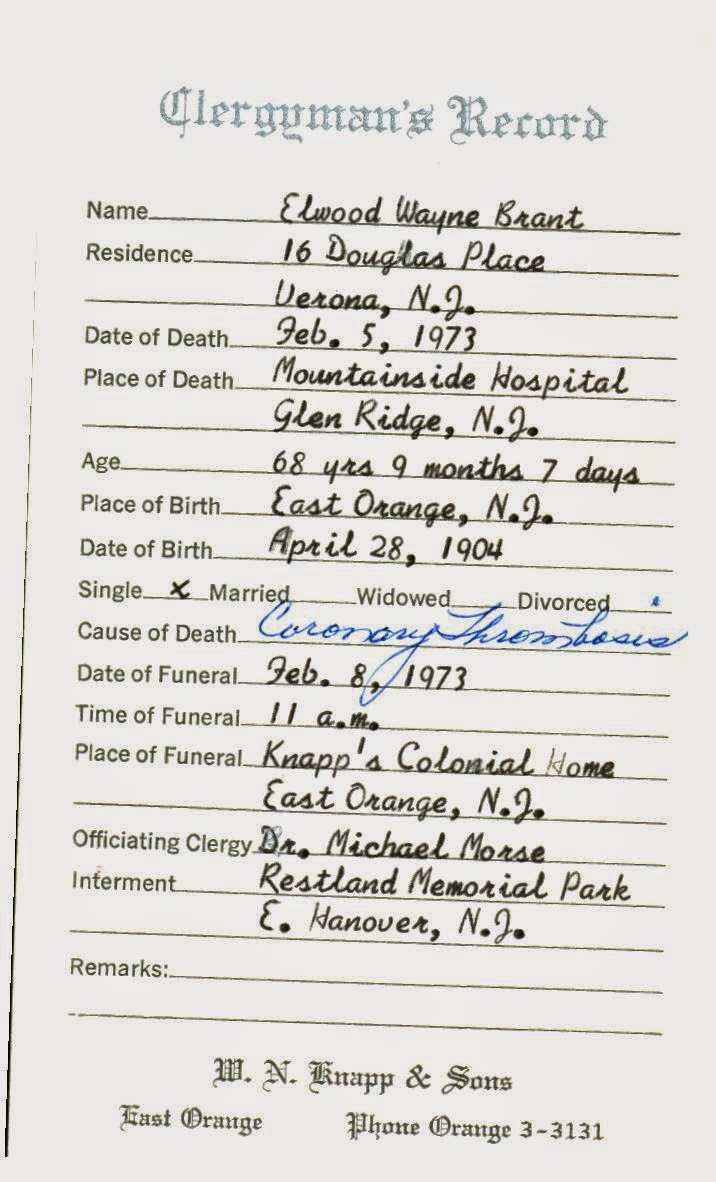 Clergyman's Record
Name Elwood Wayne Brant
Residence 16 Douglas Place
Verona, N.J.
Date of Death Feb. 5, 1973
Place of Death Mountainside Hospital
Glen Ridge, N.J.
Age 68 yrs 9 months 7 days
Place of Birth East Orange, N.J.
Date of Birth April 28, 1904
Single x Married Widowed Divorced
Cause of Death Coronary Thrombosis
Date of Funeral Feb. 8, 1973
Time of Funeral 11 a.m.
Place of Funeral Knapp's Colonial Home
East Orange, N.J.
Officiating Clergy Dr. Michael Morse
Interment Restland Memorial Park
E. Hanover, N.J.
Remarks:
W. N. Knapp & Sons
East Orange Phone Orange 3-3131